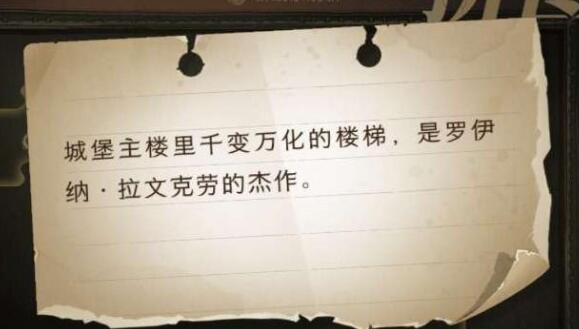 城堡主楼里千变万化的楼梯，是罗伊
纳·拉文克劳的杰作。